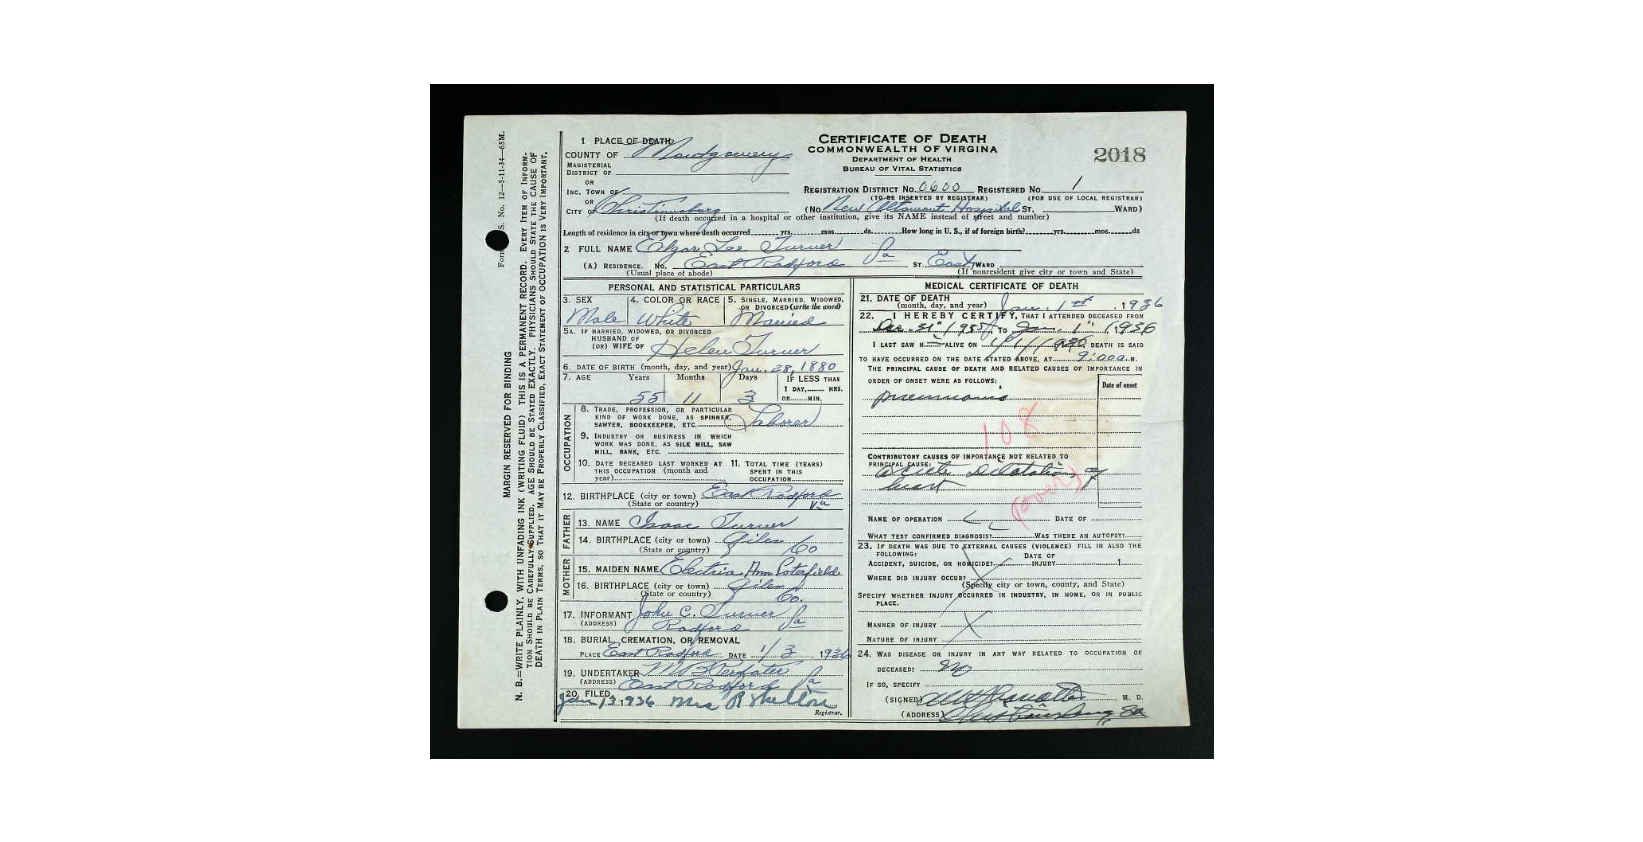 CERTIFICATE OF DEATH
COMMONWEALTH OF VIRGINIA
DEPARTMENT OF HEALTH
BUREAU OF VITAL STATISTICS
2018
1 PLACE OF DEATH
COUNTY OF Montgomery
MAGISTERIAL
DISTRICT OF
OR
INC. TOWN OF
OR
CITY OF Christiansburg
REGISTRATION DISTRICT NO. 0600 REGISTERED NO. 1
(TO BE INSERTED BY REGISTRAR) (FOR USE OF LOCAL REGISTRAR)
(No New Altamont Hospital ST. WARD)
(If death occurred in a hospital or other institution, give its NAME instead of street and number)
Length of residence in city or town where death occurred yrs. mos. ds. How long in U. S., if of foreign birth? yrs. mos. ds
2 FULL NAME Edgar Lee Turner
(A) RESIDENCE. NO. East Radford Va ST. East WARD
(Usual place of abode) (If nonresident give city or town and State)
PERSONAL AND STATISTICAL PARTICULARS
3. SEX 4. COLOR OR RACE 5. SINGLE, MARRIED, WIDOWED,
OR DIVORCED (write the word)
Male White Married
5A. IF MARRIED, WIDOWED, OR DIVORCED
HUSBAND OF
(OR) WIFE OF Helen Turner
6. DATE OF BIRTH (month, day, and year) Jan. 28, 1880
7. AGE Years Months Days IF LESS THAN
1 DAY, HRS.
55 11 3 OR MIN.
OCCUPATION
8. TRADE, PROFESSION, OR PARTICULAR
KIND OF WORK DONE, AS SPINNER,
SAWYER, BOOKKEEPER, ETC. Laborer
9. INDUSTRY OR BUSINESS IN WHICH
WORK WAS DONE, AS SILK MILL, SAW
MILL, BANK, ETC.
10. DATE DECEASED LAST WORKED AT 11. TOTAL TIME (YEARS)
THIS OCCUPATION (month and SPENT IN THIS
year) OCCUPATION
12. BIRTHPLACE (city or town) East Radford
(State or country) Va
FATHER
13. NAME Isaac Turner
14. BIRTHPLACE (city or town) Giles
(State or country) Co
MOTHER
15. MAIDEN NAME Electria Ann Poterfield
16. BIRTHPLACE (city or town) Giles
(State or country) Co.
17. INFORMANT John C. Turner
(ADDRESS) Radford Va
18. BURIAL, CREMATION, OR REMOVAL
PLACE East Radford DATE 1/3 1936
19. UNDERTAKER
(ADDRESS) East Radford Va
20. FILED Jan 13, 1936 Mrs R Shelton
Registrar.
MEDICAL CERTIFICATE OF DEATH
21. DATE OF DEATH
(month, day, and year) Jan. 1st, 1936
22. I HEREBY CERTIFY, THAT I ATTENDED DECEASED FROM
Dec. 31" 1935 TO Jan. 1" 1936
I LAST SAW H ALIVE ON 1/1/1936 DEATH IS SAID
TO HAVE OCCURRED ON THE DATE STATED ABOVE, AT 9:00 a. M.
THE PRINCIPAL CAUSE OF DEATH AND RELATED CAUSES OF IMPORTANCE IN
ORDER OF ONSET WERE AS FOLLOWS:
Date of onset
pneumonia
108
CONTRIBUTORY CAUSES OF IMPORTANCE NOT RELATED TO
PRINCIPAL CAUSE:
acute dilatation of
heart
(over)
NAME OF OPERATION DATE OF
WHAT TEST CONFIRMED DIAGNOSIS? WAS THERE AN AUTOPSY?
23. IF DEATH WAS DUE TO EXTERNAL CAUSES (VIOLENCE) FILL IN ALSO THE
FOLLOWING:
DATE OF
ACCIDENT, SUICIDE, OR HOMICIDE? INJURY 1
WHERE DID INJURY OCCUR?
(Specify city or town, county, and State)
SPECIFY WHETHER INJURY OCCURRED IN INDUSTRY, IN HOME, OR IN PUBLIC
PLACE.
MANNER OF INJURY
NATURE OF INJURY
24. WAS DISEASE OR INJURY IN ANY WAY RELATED TO OCCUPATION OF
DECEASED? no
IF SO, SPECIFY
(SIGNED) M. D.
(ADDRESS) Christiansburg, Va
MARGIN RESERVED FOR BINDING
N. B.—WRITE PLAINLY, WITH UNFADING INK (WRITING FLUID) THIS IS A PERMANENT RECORD. EVERY ITEM OF INFORM-
TION SHOULD BE CAREFULLY SUPPLIED. AGE SHOULD BE STATED EXACTLY. PHYSICIANS SHOULD STATE THE CAUSE OF
DEATH IN PLAIN TERMS, SO THAT IT MAY BE PROPERLY CLASSIFIED. EXACT STATEMENT OF OCCUPATION IS VERY IMPORTANT.
S. No. 12—5-11-34—65M.